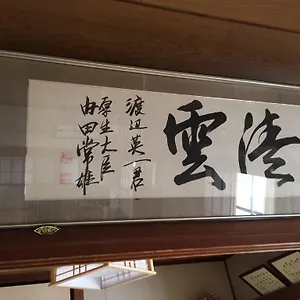 清雲
渡辺英一君
厚生大臣
内田常雄